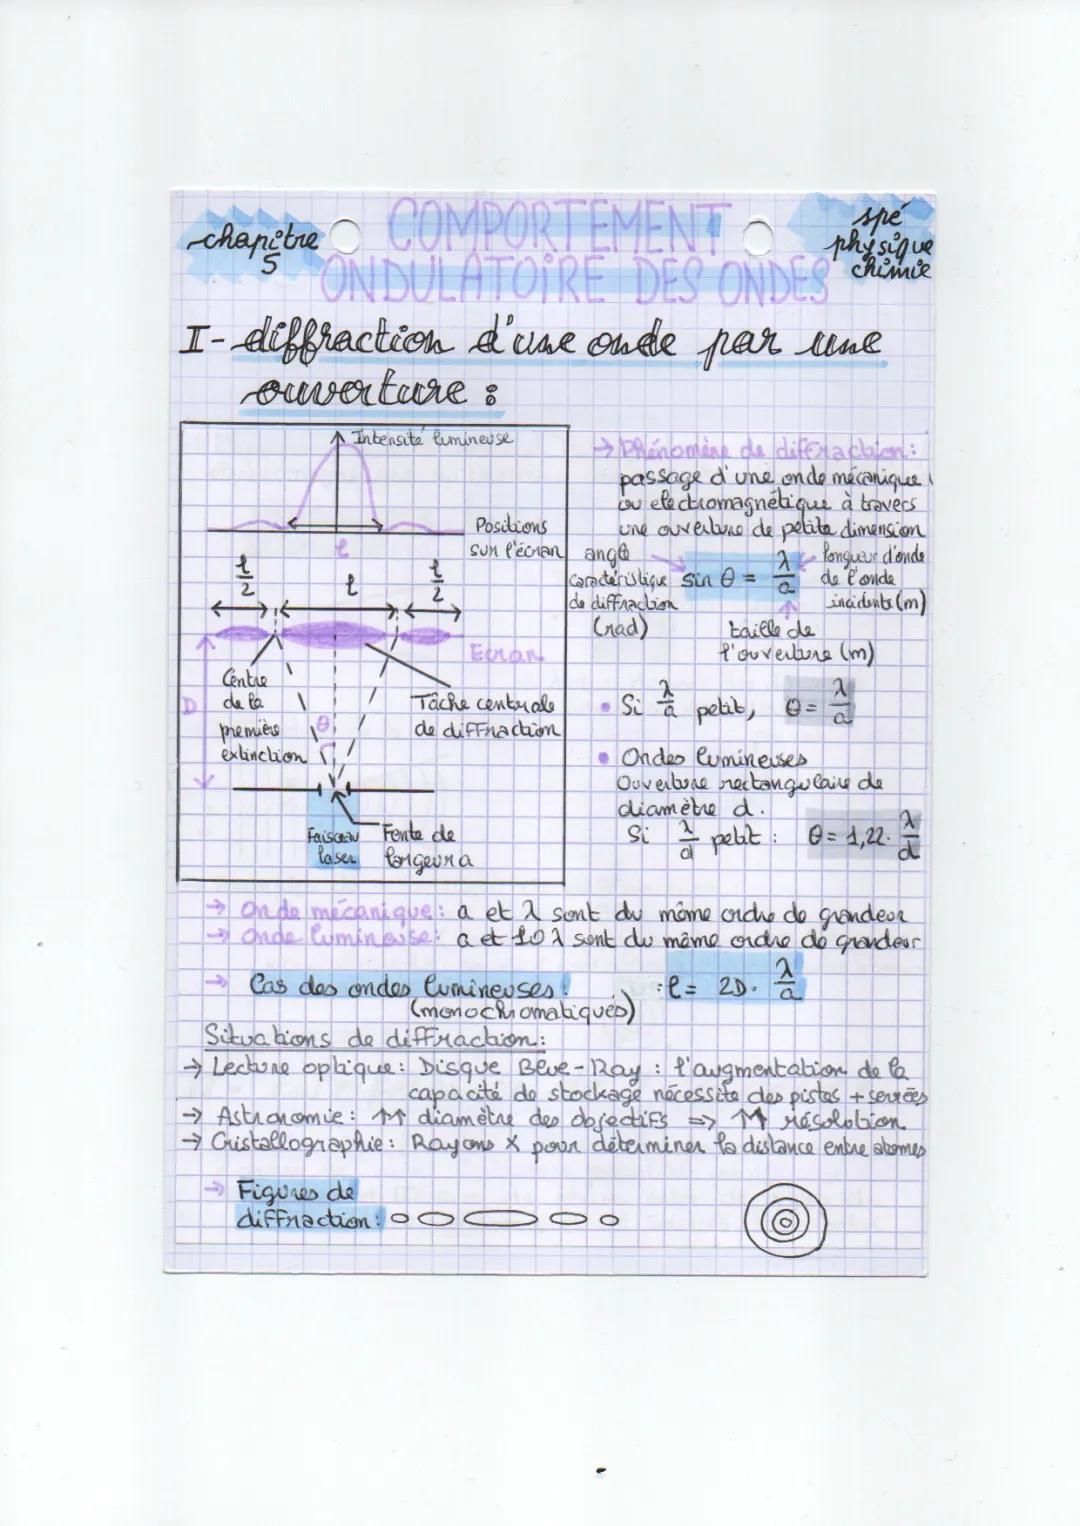 chapitre
5
COMPORTEMENT
ONDULATOIRE DES ONDES
spé
physique
chimie
I- diffraction d'une onde par une
ouverture :
Intensité lumineuse
Positions
sur l'écran
l
l/2
l
l/2
Ecran
D
Centre
de la
première
extinction
θ
Tâche centrale
de diffraction
Faisceau
laser
Fente de
largeur a
→ Phénomène de diffraction :
passage d'une onde mécanique
ou électromagnétique à travers
une ouverture de petite dimension
angle
caractéristique
de diffraction
(rad)
sin θ = λ/a
longueur d'onde
de l'onde
incidente (m)
taille de
l'ouverture (m)
• Si λ/a petit, θ = λ/a
• Ondes lumineuses
Ouverture rectangulaire de
diamètre d.
Si λ/d petit : θ = 1,22. λ/d
→ Onde mécanique : a et λ sont du même ordre de grandeur
→ Onde lumineuse : a et 10 λ sont du même ordre de grandeur
→ Cas des ondes lumineuses : l = 2D. λ/a
(monochromatiques)
Situations de diffraction :
→ Lecture optique : Disque Blue-Ray : l'augmentation de la
capacité de stockage nécessite des pistes + serrées
→ Astronomie : ↑↑ diamètre des objectifs => ↑↑ résolution
→ Cristallographie : Rayons X pour déterminer la distance entre atomes
→ Figures de
diffraction :